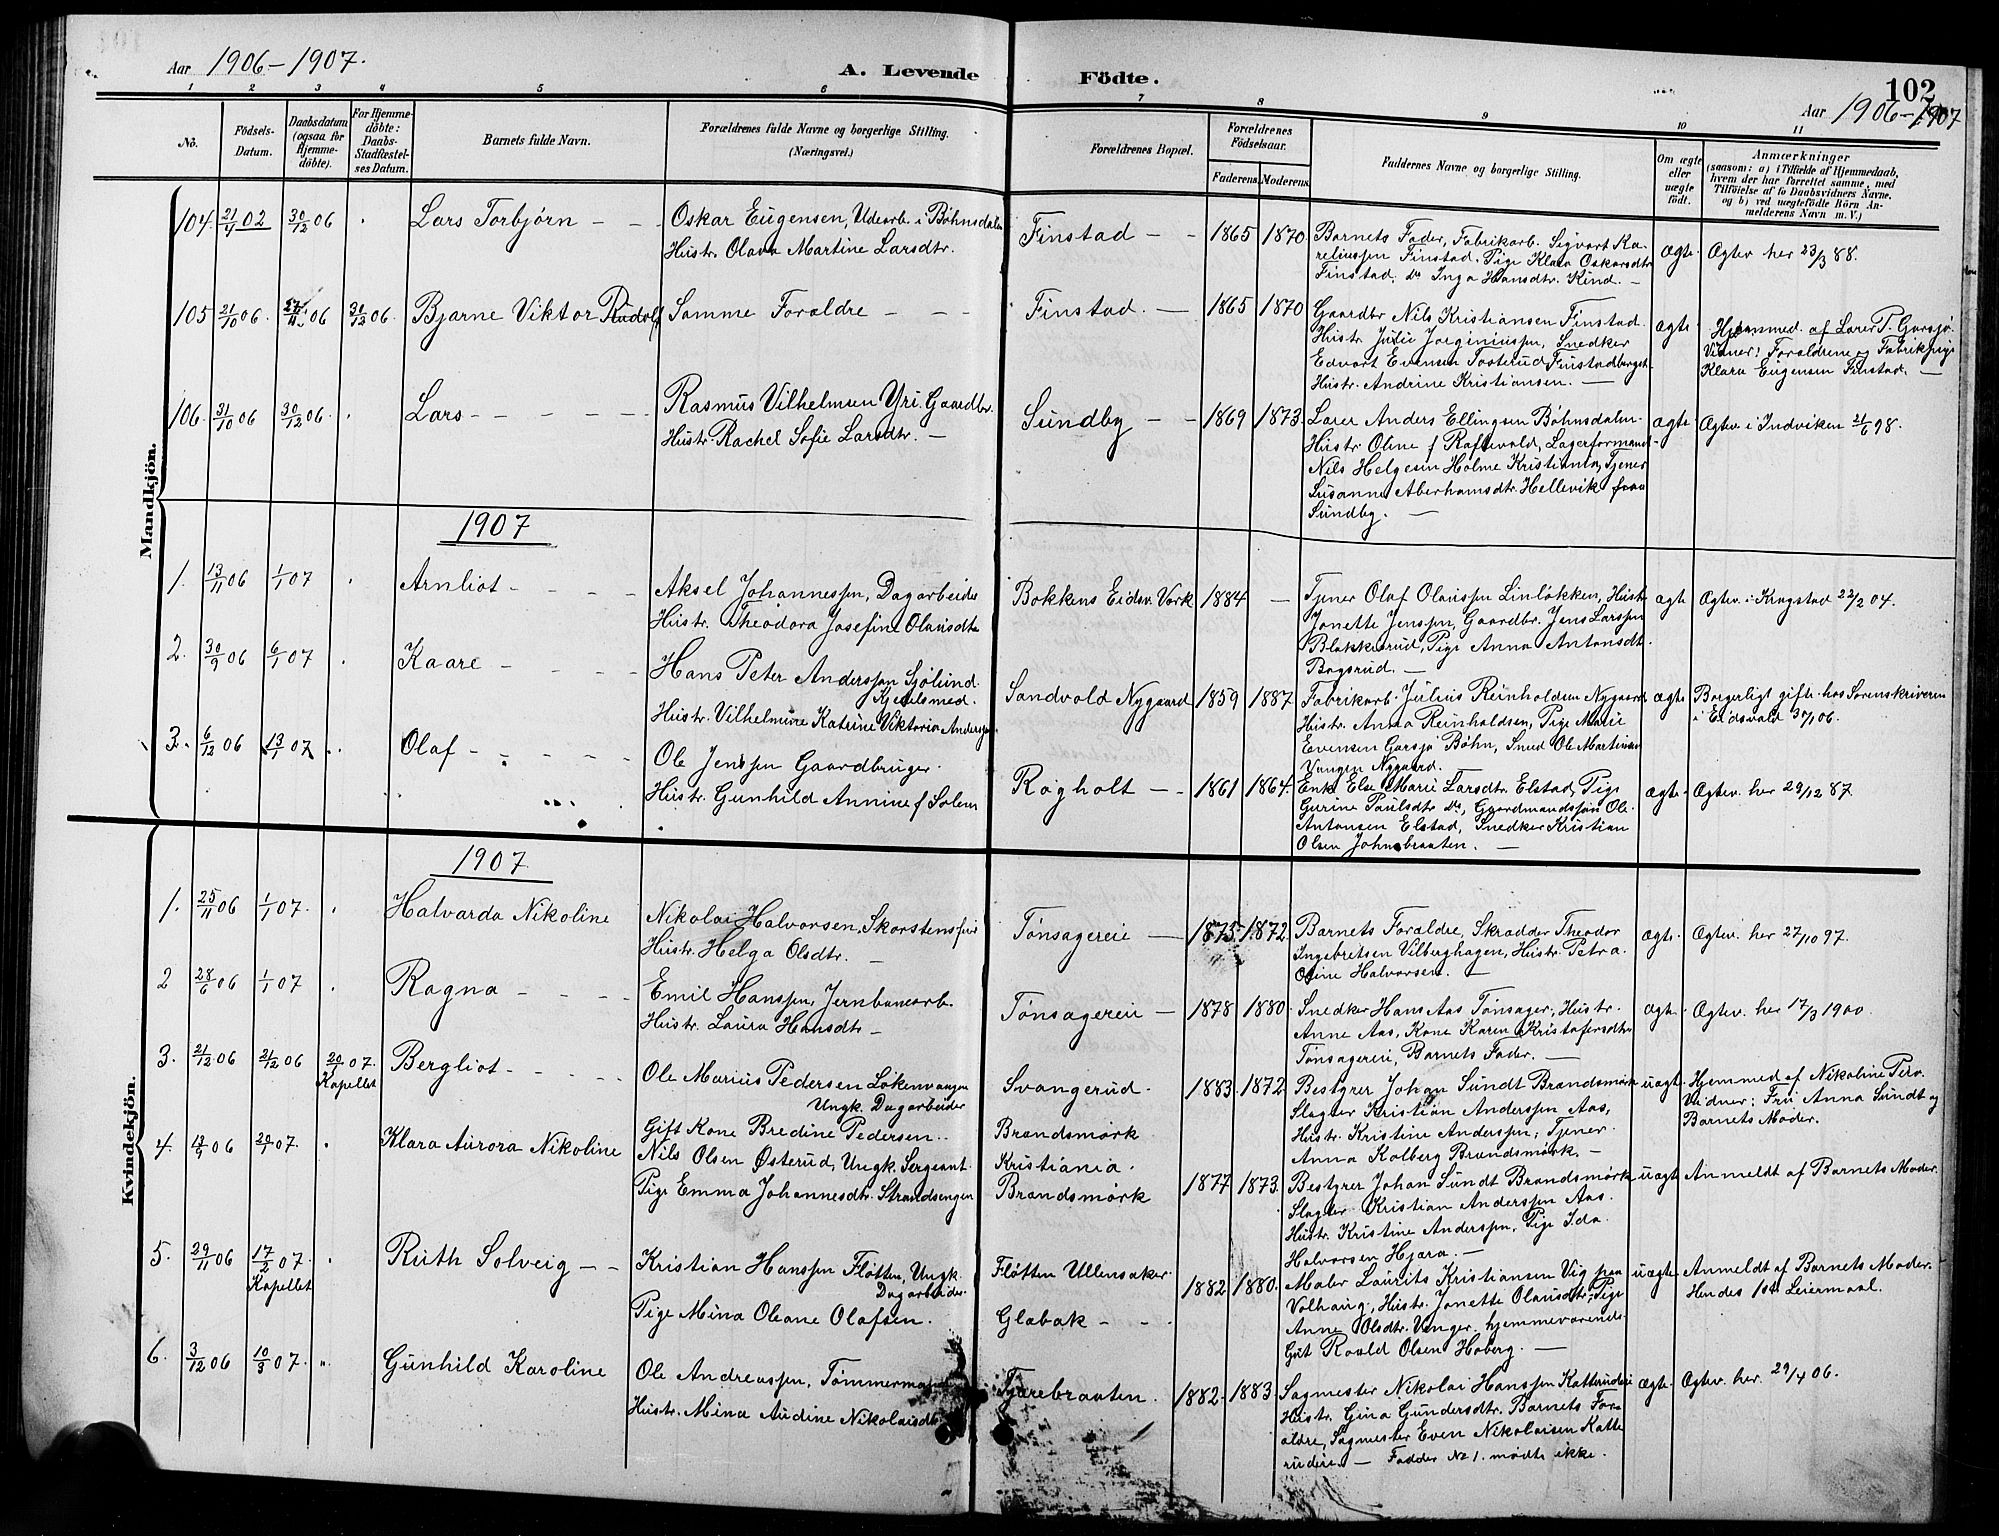 Aar 1906-1907.
A. Levende Födte.
102
Aar 1906-1907
1 2 3 4 5 6 7 8 9 10 11
No.
Födsels-
Datum.
Daabsdatum
(ogsaa for
Hjemme-
döbte).
For Hjemme-
döbte:
Daabs-
Stadfæstel-
ses Datum.
Barnets fulde Navn.
Forældrenes fulde Navne og borgerlige Stilling.
(Næringsvei.)
Forældrenes Bopæl.
Forældrenes
Födselsaar.
Faderens. Moderens.
Faddernes Navne og borgerlige Stilling.
Om ægte
eller
uægte
födt.
Anmærkninger
(saasom: a) i Tilfælde af Hjemmedaab,
hvem der har forrettet samme, med
Tilföielse af to Daabsvidners Navne,
og b) ved uægtefödte Börn An-
melderens Navn m. V.)
Mandkjön.
104. 21/4 02 30/12 06 Lars Torbjörn - - Oskar Eugensen, Udearb. i Bøhnsdalen
Hustr. Olava Martine Larsdtr.
Finstad - - 1865 1870
Barnets Fader, Fabrikarb. Sigvart Ka-
reliussen Finstad, Pige Klara Oskarsdtr
Finstad, do Inga Hansdtr. Kind. -
Ægte. Ægtev. her 23/3 88.
105 21/10 06. 27/11 06 30/12 06. Bjarne Viktor Rudolf Samme Forældre - - -
Finstad. - 1865 1870
Gaardbr Nils Kristiansen Finstad.
Hustr. Julie Jorginiussen, Snedker
Edvart Evensen Tosterud Finstadberget
Hustr. Andrine Kristiansen. -
ægte Hjemmed. af Lærer P. Garsjø.
Vidner: Forældrene og Fabrikpige
Klara Eugensen Finstad. -
106. 31/10 06 30/12 06. Lars - - - - Rasmus Vilhelmsen Yri. Gaardbr.
Hustr. Rachel Sofie Larsdtr. -
Sundby - - 1869 1873
Lærer Anders Ellingsen Bøhnsdalen
Hustr Oline f Raftevold, Lagerformand
Nils Helgesen Holme Kristiania, Tjener
Susanne Aberhamsdtr. Hellevik fraa
Sundby. -
ægte Ægtev. i Indviken 21/6 98.
1907
1. 13/11 06 1/1 07 Arnliot - - - - Aksel Johannessen, Dagarbeider
Hustr. Theodora Josefine Olausdtr
Bokkens Eidsv. Værk 1884 -
Tjener Olaf Olaussen Linløkken, Hustr
Jonette Jenssen, Gaardbr. Jens Larssen
Blakkesrud, Pige Anna Antonsdtr.
Bagsrud. -
ægte Ægtev. i Kragstad 22/2 04.
2. 30/9 06 6/1 07 Kaare - - - Hans Peter Anderssen Sjølund.
Kjedelsmed.
Hustr. Vilhelmine Katrine Viktoria Anderssen
Sandvold Nygaard 1859 1887
Fabrikarb. Julius Reinholdsen Nygaard
Hustr. Anna Reinholdsen, Pige Marie
Evensen Garsjø Bøhn, Smed Ole Martinsen
Vangen Nygaard.
ægte Borgerligt gifte hos Sorenskriveren
i Eidsvold 30/1 06.
3. 6/12 06 13/1 07 Olaf - - - - Ole Jenssen Gaardbruger.
Hustr. Gunhild Annine f Solem
Røgholt - - 1861 1864.
Enk. Else Marie Larsdtr. Elstad, Pige
Gurine Paulsdtr do, Gaardmandssøn Ole
Antonsen Elstad, Snedker Kristian
Olsen Johnsbraaten. -
ægte Ægtev. her 29/12 87.
Kvindekjön.
1907.
1. 25/11 06 1/1 07. Halvarda Nikoline Nikolai Halvorsen, Skorstensfeier
Hustr. Helga Olsdtr. -
Tønsagereie - 1875 1872
Barnets Forældre, Skrædder Theodor
Ingebretsen Vilberghagen, Hustr. Petra
Oline Halvorsen. -
ægte. Ægtev. her 27/10 97.
2 28/6 06 1/1 07 Ragna - - - - Emil Hanssen, Jernbanearb.
Hustr. Laura Hansdtr -
Tønsagereie - 1878 1880
Snedker Hans Aas Tønsager, Hustr.
Anne Aas, Kone Karen Kristofersdtr
Tønsagereie, Barnets Fader. -
Ægte. Ægtev. her 17/3 1900.
3. 21/12 06 21/12 06 20/1 07.
Kapellet
Bergliot - - - - Ole Marius Pedersen Løkenvangen
Ungk. Dagarbeider
Gift Kone Bredine Pedersen.
Svangerud. 1883. 1872
Brandsmørk
Bestyrer Johan Sundt Brandsmørk
Slagter Kristian Anderssen Aas,
Hustr. Kristine Anderssen, Tjener
Anna Kolberg Brandsmørk. -
uægte Hjemmed. af Nikoline
Vidner: Fru Anna Sundt og
Barnets Moder.
4. 13/9 06 20/1 07. Klara Aurora Nikoline Nils Olsen Østerud, Ungk. Sergeant.
Pige Emma Johannesdtr. Strandsengen
Kristiania.
Brandsmørk 1877 1873.
Bestyrer Johan Sundt Brandsmørk
Slagter Kristian Anderssen Aas.
Hustr. Kristine Anderssen, Pige Ida
Halvorsen Hjera. -
uægte Anmeldt af Barnets Moder.
5. 29/11 06 17/2 07.
Kapellet
Ruth Solveig - - Kristian Hanssen Fløtten, Ungk.
Dagarbeider.
Pige Mina Oleane Olafsen.
Fløtten Ullensaker
Glabak - - 1882 1880.
Maler Laurits Kristiansen Vig paa
Volhaug, Hustr. Jonette Olausdtr, Pige
Anne Olsdtr. Venger, hjemmeværende
Gut Roald Olsen Hoberg. -
uægte Anmeldt af Barnets Moder.
Hendes 1ste Leiermaal.
6. 3/12 06 10/3 07. Gunhild Karoline Ole Andreassen, Tømmermand
Hustr. Mina Audine Nikolaisdtr
Tjærebraaten. 1882. 1883
Sagmester Nikolai Hanssen Katterudeie
Hustr. Gina Gundersdtr. Barnets For-
ældre, Sagmester Even Nikolaisen Katte
rudeie. - Fadder No 1. mødte ikke.
ægte. Ægtev. her. 29/4 06.